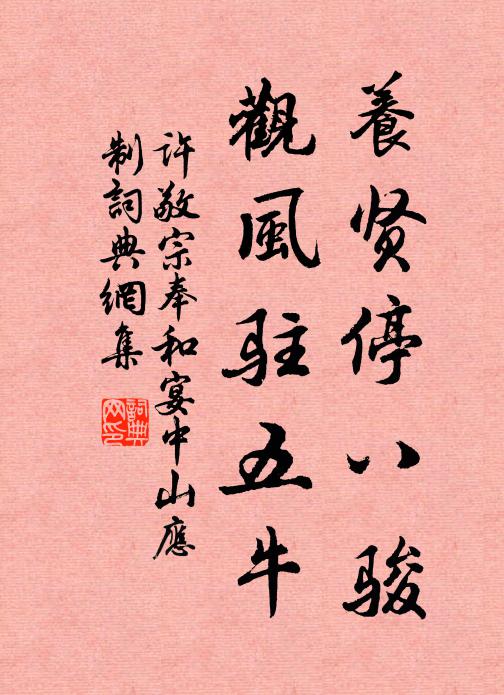 養贤停八骏
觀風驻五牛
许敬宗奉和宴中山應
制詞典網集
詞典网印